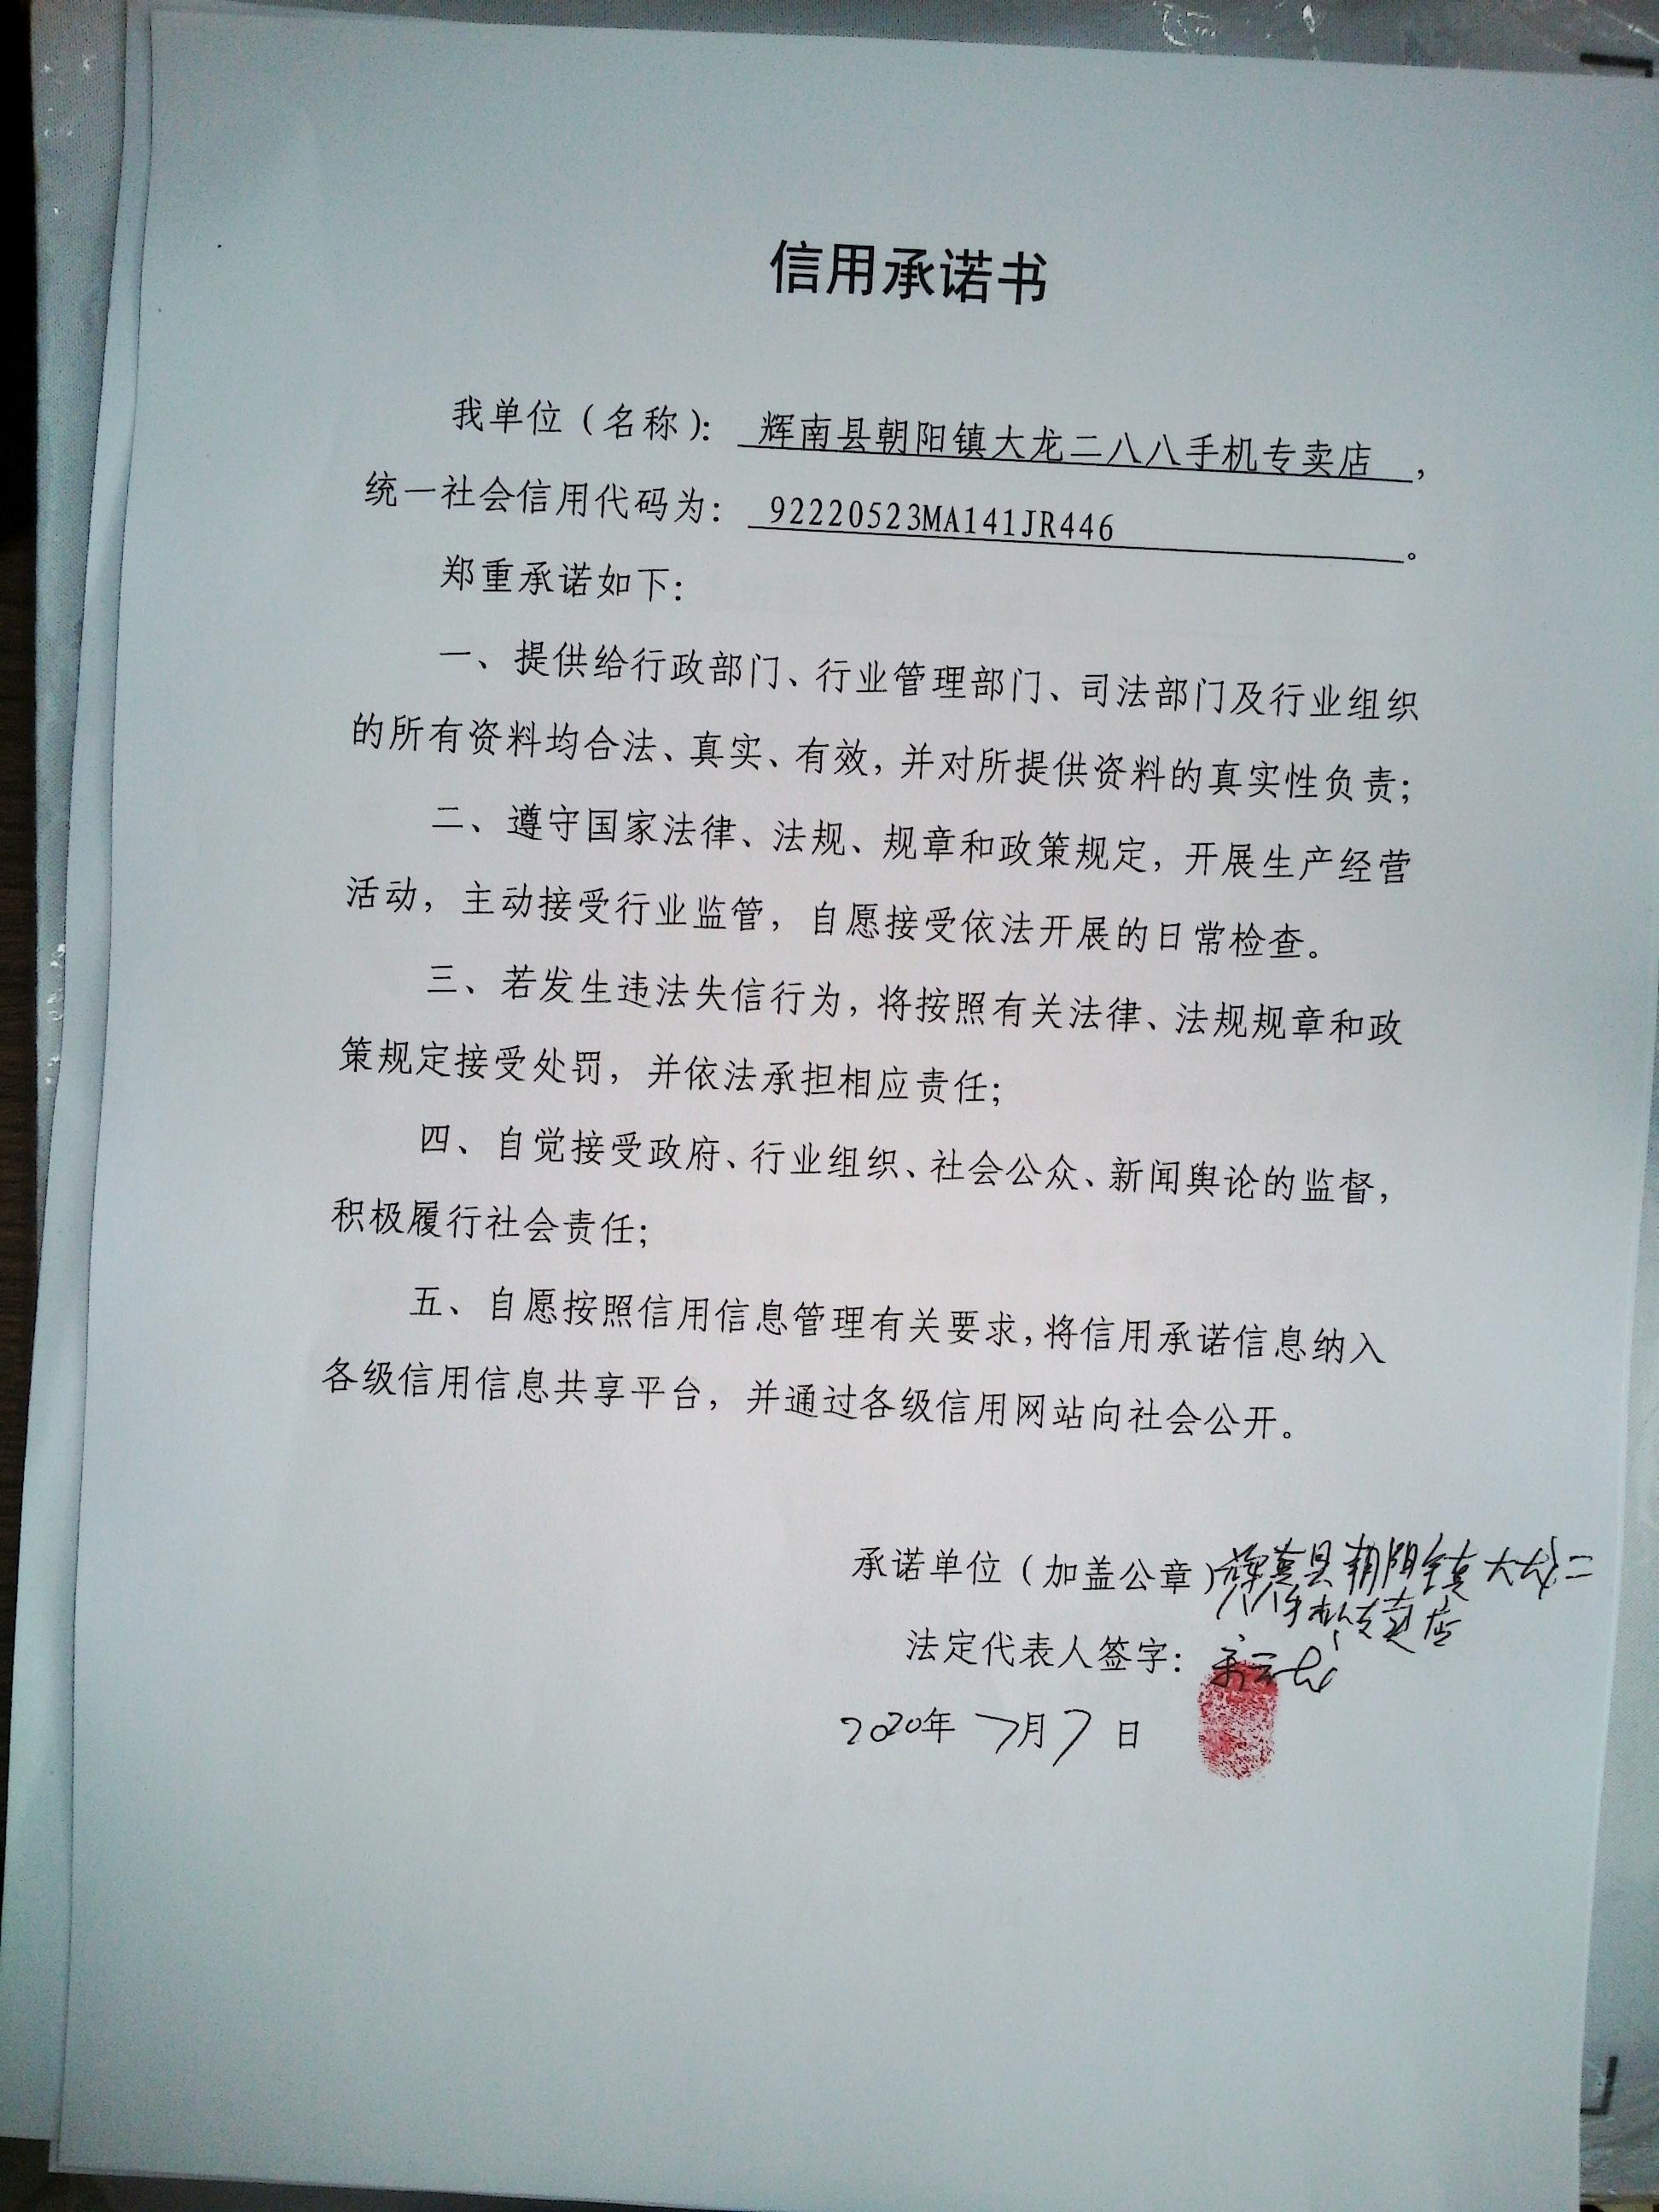 信用承诺书
我单位（名称）：辉南县朝阳镇大龙二八八手机专卖店，
统一社会信用代码为：92220523MA141JR446。
郑重承诺如下：
一、提供给行政部门、行业管理部门、司法部门及行业组织
的所有资料均合法、真实、有效，并对所提供资料的真实性负责；
二、遵守国家法律、法规、规章和政策规定，开展生产经营
活动，主动接受行业监管，自愿接受依法开展的日常检查。
三、若发生违法失信行为，将按照有关法律、法规规章和政
策规定接受处罚，并依法承担相应责任；
四、自觉接受政府、行业组织、社会公众、新闻舆论的监督，
积极履行社会责任；
五、自愿按照信用信息管理有关要求，将信用承诺信息纳入
各级信用信息共享平台，并通过各级信用网站向社会公开。
承诺单位（加盖公章）辉南县朝阳镇大龙二
八八手机专卖店
法定代表人签字：
2020年7月7日